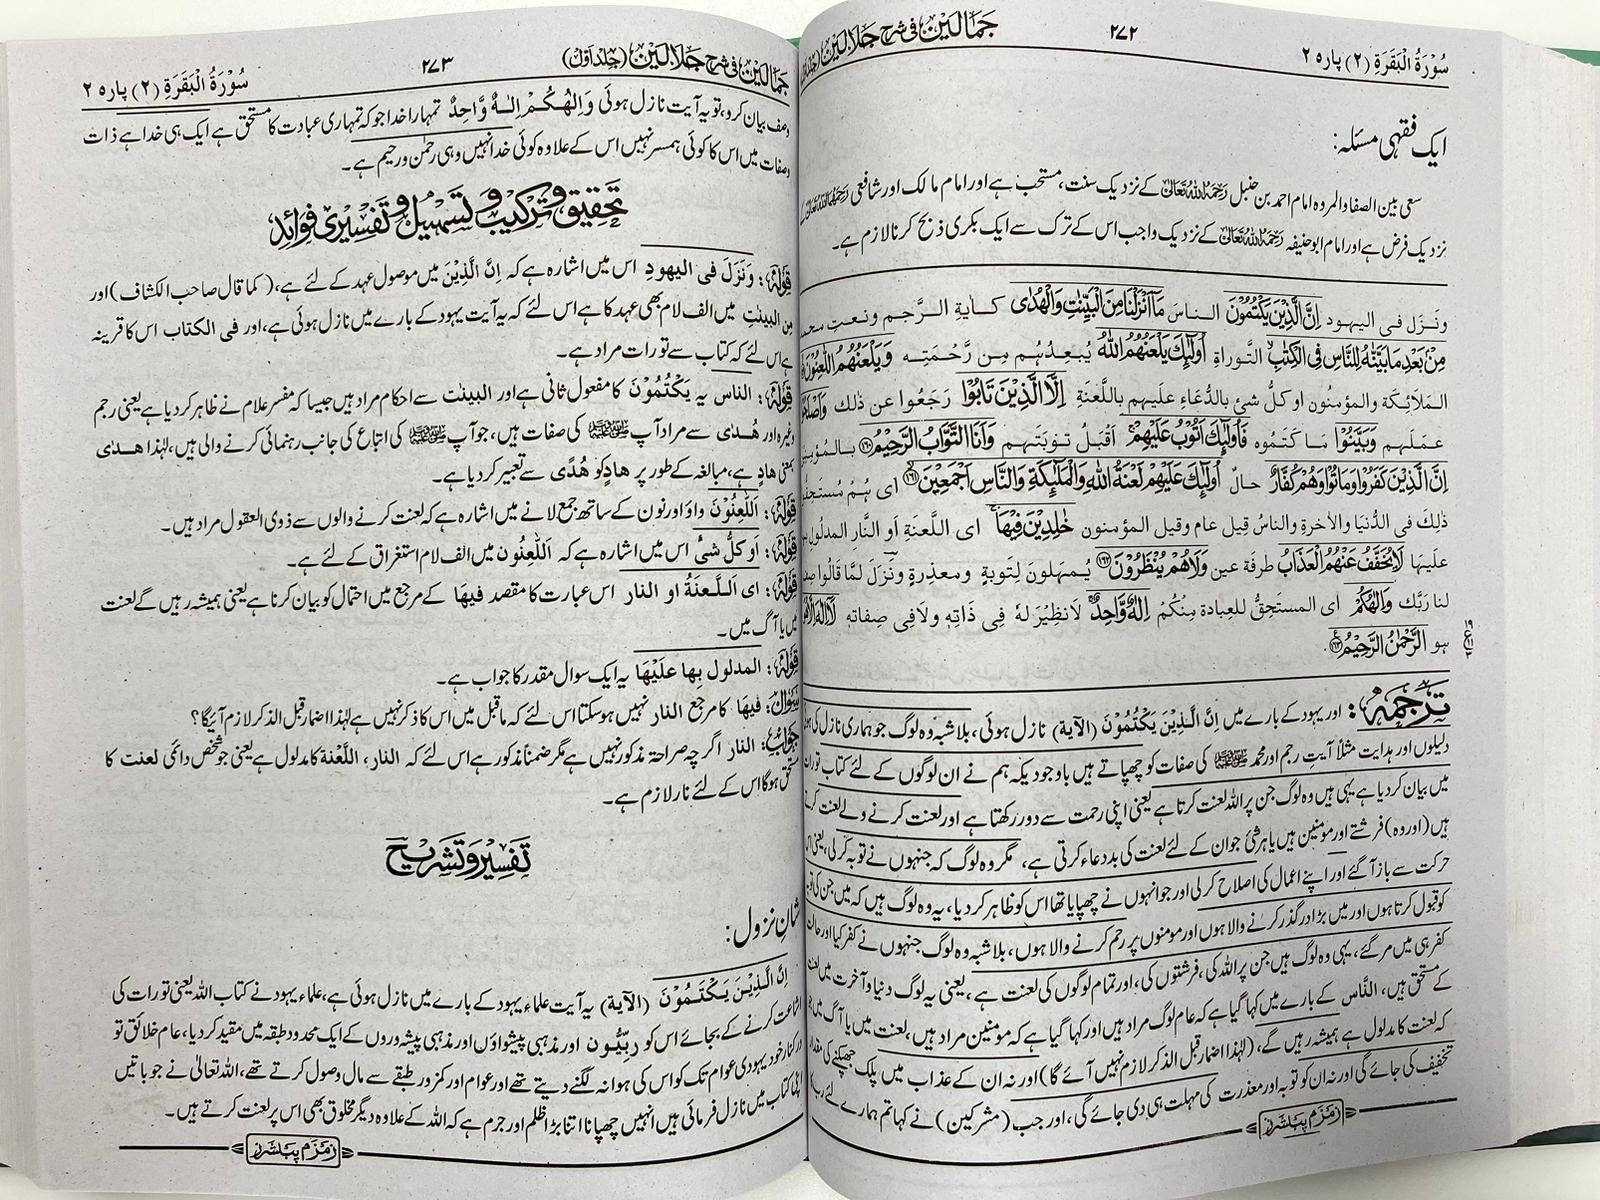 سُوْرَةُ الْبَقَرَةِ (٢) پاره ٢
٢٧٢
جَمَالَيْن فی شرح جَلَالَيْن
ایک فقہی مسئلہ:
سعی بین الصفا والمروہ امام احمد بن حنبل رَحِمَهُ اللهُ تَعَالىٰ کے نزدیک سنت، مستحب ہے اور امام مالک اور شافعی
نزدیک فرض ہے اور امام ابوحنیفہ رَحِمَهُ اللهُ تَعَالىٰ کے نزدیک واجب اس کے ترک سے ایک بکری ذبح کرنا لازم ہے۔
ونَزَلَ فی الیهود اِنَّ الَّذِيْنَ يَكْتُمُوْنَ الناسَ مَآ اَنْزَلْنَا مِنَ الْبَيِّنٰتِ وَالْهُدٰى كايةِ الرَّجم ونعتِ
مِنْ بَعْدِ مَا بَيَّنّٰهُ لِلنَّاسِ فِى الْكِتٰبِ التَّوراةِ اُولٰٓئِكَ يَلْعَنُهُمُ اللّٰهُ يُبعِدُهُم مِن رَّحْمَتِه وَيَلْعَنُهُمُ اللّٰعِنُوْنَ
المَلَائِكة والمؤمنون او كلُّ شئ بالدُّعَاءِ عليهم باللَّعنةِ اِلَّا الَّذِيْنَ تَابُوْا رَجَعُوا عن ذلك
عملَهم وَبَيَّنُوْا مَا كَتَمُوه فَاُولٰٓئِكَ اَتُوْبُ عَلَيْهِمْ اَقْبَلُ توبَتَهم وَاَنَا التَّوَّابُ الرَّحِيْمُ ۝١٦٠
اِنَّ الَّذِيْنَ كَفَرُوْا وَمَاتُوْا وَهُمْ كُفَّارٌ حالٌ اُولٰٓئِكَ عَلَيْهِمْ لَعْنَةُ اللّٰهِ وَالْمَلٰٓئِكَةِ وَالنَّاسِ اَجْمَعِيْنَ ۝١٦١ ای هُمْ
ذٰلِكَ فی الدُّنيا والاخرةِ والناسُ قيل عام وقيل المؤمنون خٰلِدِيْنَ فِيْهَا ای اللَّعنةِ او النَّار المدلول
عليها لَا يُخَفَّفُ عَنْهُمُ الْعَذَابُ طرفة عين وَلَا هُمْ يُنْظَرُوْنَ ۝١٦٢ يمهلون لِتوبةٍ ومعذرةٍ ونَزَل لمَّا قالُوا
لنا رَبَّك وَاِلٰهُكُمْ ای المستَحِقُّ للعبادة مِنكُمْ اِلٰهٌ وَّاحِدٌ لَا نظِيْرَ لهٗ فِی ذَاتِه ولا فِی صفاته
هو الرَّحْمٰنُ الرَّحِيْمُ ۝١٦٣
تَرْجَمَہ: اور یہود کے بارے میں اِنَّ الَّذِيْنَ يَكْتُمُوْنَ (الآية) نازل ہوئی، بلاشبہ وہ لوگ جو ہماری نازل کی
دلیلوں اور ہدایت مثلاً آیتِ رجم اور محمد ﷺ کی صفات کو چھپاتے ہیں باوجودیکہ ہم نے ان لوگوں کے لئے کتاب
میں بیان کر دیا ہے یہی ہیں وہ لوگ جن پر اللہ لعنت کرتا ہے یعنی اپنی رحمت سے دور رکھتا ہے اور لعنت کرنے والے لعنت کرتے
ہیں (اور وہ) فرشتے اور مومنین ہیں یا ہر شئ جو ان کے لئے لعنت کی بددعاء کرتی ہے، مگر وہ لوگ کہ جنہوں نے توبہ کر لی، یعنی
حرکت سے باز آ گئے اور اپنے اعمال کی اصلاح کر لی اور جو انہوں نے چھپایا تھا اس کو ظاہر کر دیا، یہ وہ لوگ ہیں کہ میں جن کی
کو قبول کرتا ہوں اور میں بڑا درگذر کرنے والا ہوں اور مومنوں پر رحم کرنے والا ہوں، بلاشبہ وہ لوگ جنہوں نے کفر کیا اور
کفر ہی میں مر گئے، یہی وہ لوگ ہیں جن پر اللہ کی، فرشتوں کی، اور تمام لوگوں کی لعنت ہے، یعنی یہ لوگ دنیا و آخرت میں
کے مستحق ہیں، النَّاس کے بارے میں کہا گیا ہے کہ عام لوگ مراد ہیں اور کہا گیا ہے کہ مومنین مراد ہیں، لعنت میں یا آگ میں
کہ لعنت کا مدلول ہے ہمیشہ رہیں گے، (لہٰذا اضمار قبل الذکر لازم نہیں آئے گا) اور نہ ان کے عذاب میں پلک جھپکنے کی
تخفیف کی جائے گی اور نہ ان کو توبہ اور معذرت کی مہلت ہی دی جائے گی، اور جب (مشرکین) نے کہا تم ہمارے لئے
زمزم پبلشرز
جَمَالَيْن فی شرح جَلَالَيْن (جلد اول)
٢٧٣
سُوْرَةُ الْبَقَرَةِ (٢) پاره ٢
وصف بیان کرو، تو یہ آیت نازل ہوئی وَاِلٰهُكُمْ اِلٰهٌ وَّاحِدٌ تمہارا خدا جو کہ تمہاری عبادت کا مستحق ہے ایک ہی خدا ہے ذات
وصفات میں اس کا کوئی ہمسر نہیں اس کے علاوہ کوئی خدا نہیں وہی رحمٰن و رحیم ہے۔
تحقیق و ترکیب و تسہیل و تفسیری فوائد
قَوْلُهٗ: وَنَزَلَ فی الیهودِ اس میں اشارہ ہے کہ اِنَّ الَّذِيْنَ میں موصول عہد کے لئے ہے، (کما قال صاحب الکشاف) اور
مِن البینٰتِ میں الف لام بھی عہد کا ہے اس لئے کہ یہ آیت یہود کے بارے میں نازل ہوئی ہے، اور فی الکتاب اس کا قرینہ
ہے اس لئے کہ کتاب سے تورات مراد ہے۔
قَوْلُهٗ: الناس یہ يَكْتُمُوْنَ کا مفعول ثانی ہے اور البینٰت سے احکام مراد ہیں جیسا کہ مفسر علام نے ظاہر کر دیا ہے یعنی رجم
وغیرہ اور هُدٰی سے مراد آپ ﷺ کی صفات ہیں، جو آپ ﷺ کی اتباع کی جانب رہنمائی کرنے والی ہیں، لہٰذا هدٰی
بمعنی هادٍ ہے، مبالغہ کے طور پر هادٍ کو هُدًى سے تعبیر کر دیا ہے۔
قَوْلُهٗ: اَللّٰعِنُوْنَ واؤ اور نون کے ساتھ جمع لانے میں اشارہ ہے کہ لعنت کرنے والوں سے ذوی العقول مراد ہیں۔
قَوْلُهٗ: اَو كلُّ شئ اس میں اشارہ ہے کہ اَللّٰعِنُون میں الف لام استغراق کے لئے ہے۔
قَوْلُهٗ: ای اَللَّعنَةُ او النار اس عبارت کا مقصد فیها کے مرجع میں احتمال کو بیان کرنا ہے یعنی ہمیشہ رہیں گے لعنت
میں یا آگ میں۔
قَوْلُهٗ: المدلول بِها عَلَيْهَا یہ ایک سوال مقدر کا جواب ہے۔
سُوَال: فيهَا کا مرجع النار نہیں ہو سکتا اس لئے کہ ماقبل میں اس کا ذکر نہیں ہے لہٰذا اضمار قبل الذکر لازم آئیگا؟
جواب: النار اگرچہ صراحۃ مذکور نہیں ہے مگر ضمناً مذکور ہے اس لئے کہ النار، اللَّعْنة کا مدلول ہے یعنی جو شخص دائمی لعنت کا
مستحق ہوگا اس کے لئے نار لازم ہے۔
تفسیر و تشریح
شانِ نزول:
اِنَّ الَّذِيْنَ يَكْتُمُوْنَ (الآية) یہ آیت علماء یہود کے بارے میں نازل ہوئی ہے، علماء یہود نے کتاب اللہ یعنی تورات کی
اشاعت کرنے کے بجائے اس کو رِبِّیُّون اور مذہبی پیشواؤں اور مذہبی پیشہ وروں کے ایک محدود طبقہ میں مقید کر دیا، عام خلائق تو
درکنار خود یہودی عوام تک کو اس کی ہوا نہ لگنے دیتے تھے اور عوام اور کمزور طبقے سے مال وصول کرتے تھے، اللہ تعالیٰ نے جو باتیں
اپنی کتاب میں نازل فرمائی ہیں انہیں چھپانا اتنا بڑا ظلم اور جرم ہے کہ اللہ کے علاوہ دیگر مخلوق بھی اس پر لعنت کرتے ہیں۔
زمزم پبلشرز